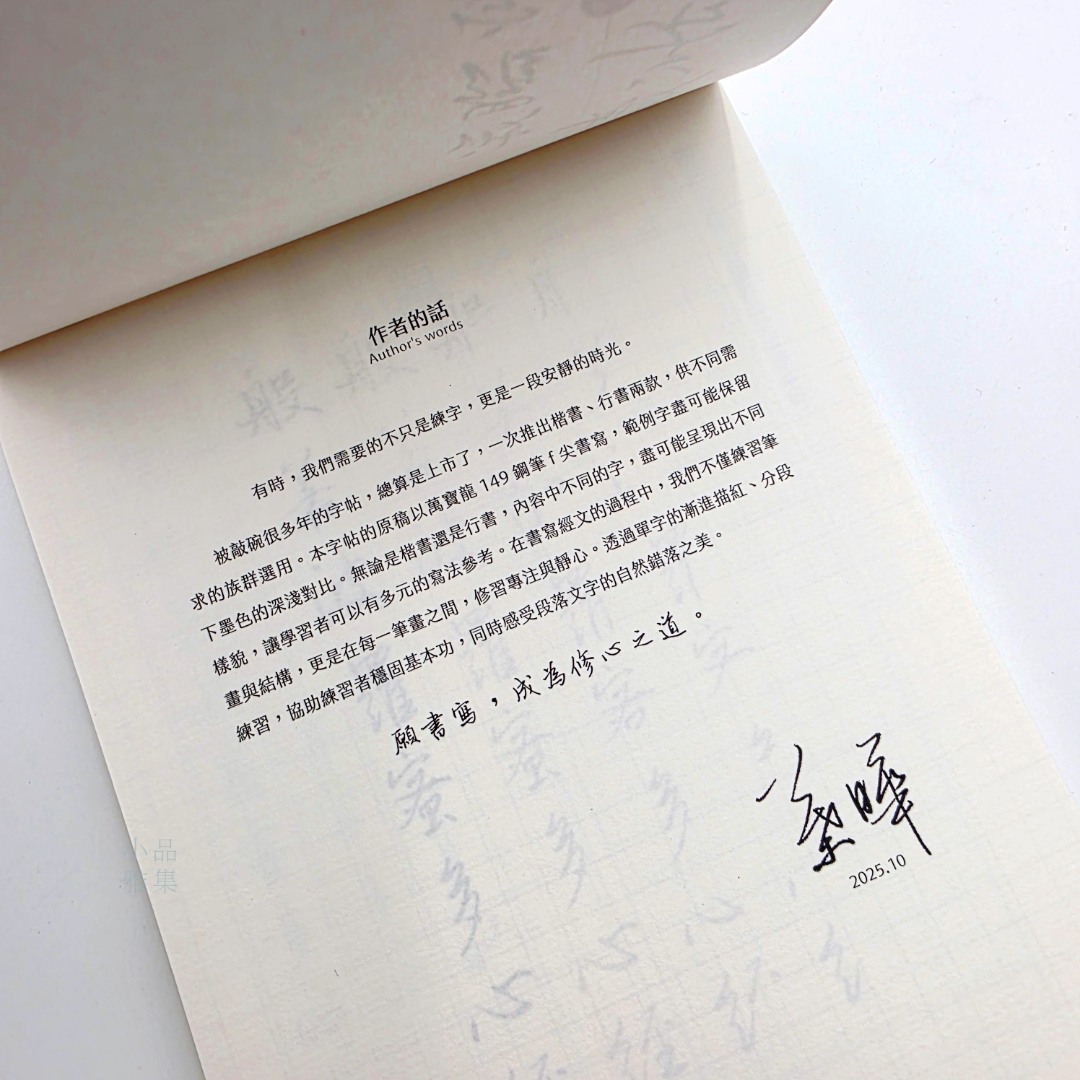 作者的話
Author's words
有時，我們需要的不只是練字，更是一段安靜的時光。
被敲碗很多年的字帖，總算是上市了，一次推出楷書、行書兩款，供不同需
求的族群選用。本字帖的原稿以萬寶龍 149 鋼筆 f 尖書寫，範例字盡可能保留
下墨色的深淺對比。無論是楷書還是行書，內容中不同的字，盡可能呈現出不同
樣貌，讓學習者可以有多元的寫法參考。在書寫經文的過程中，我們不僅練習筆
畫與結構，更是在每一筆畫之間，修習專注與靜心。透過單字的漸進描紅、分段
練習，協助練習者穩固基本功，同時感受段落文字的自然錯落之美。
願書寫，成為修心之道。
葉曄
2025.10
小品
雅集